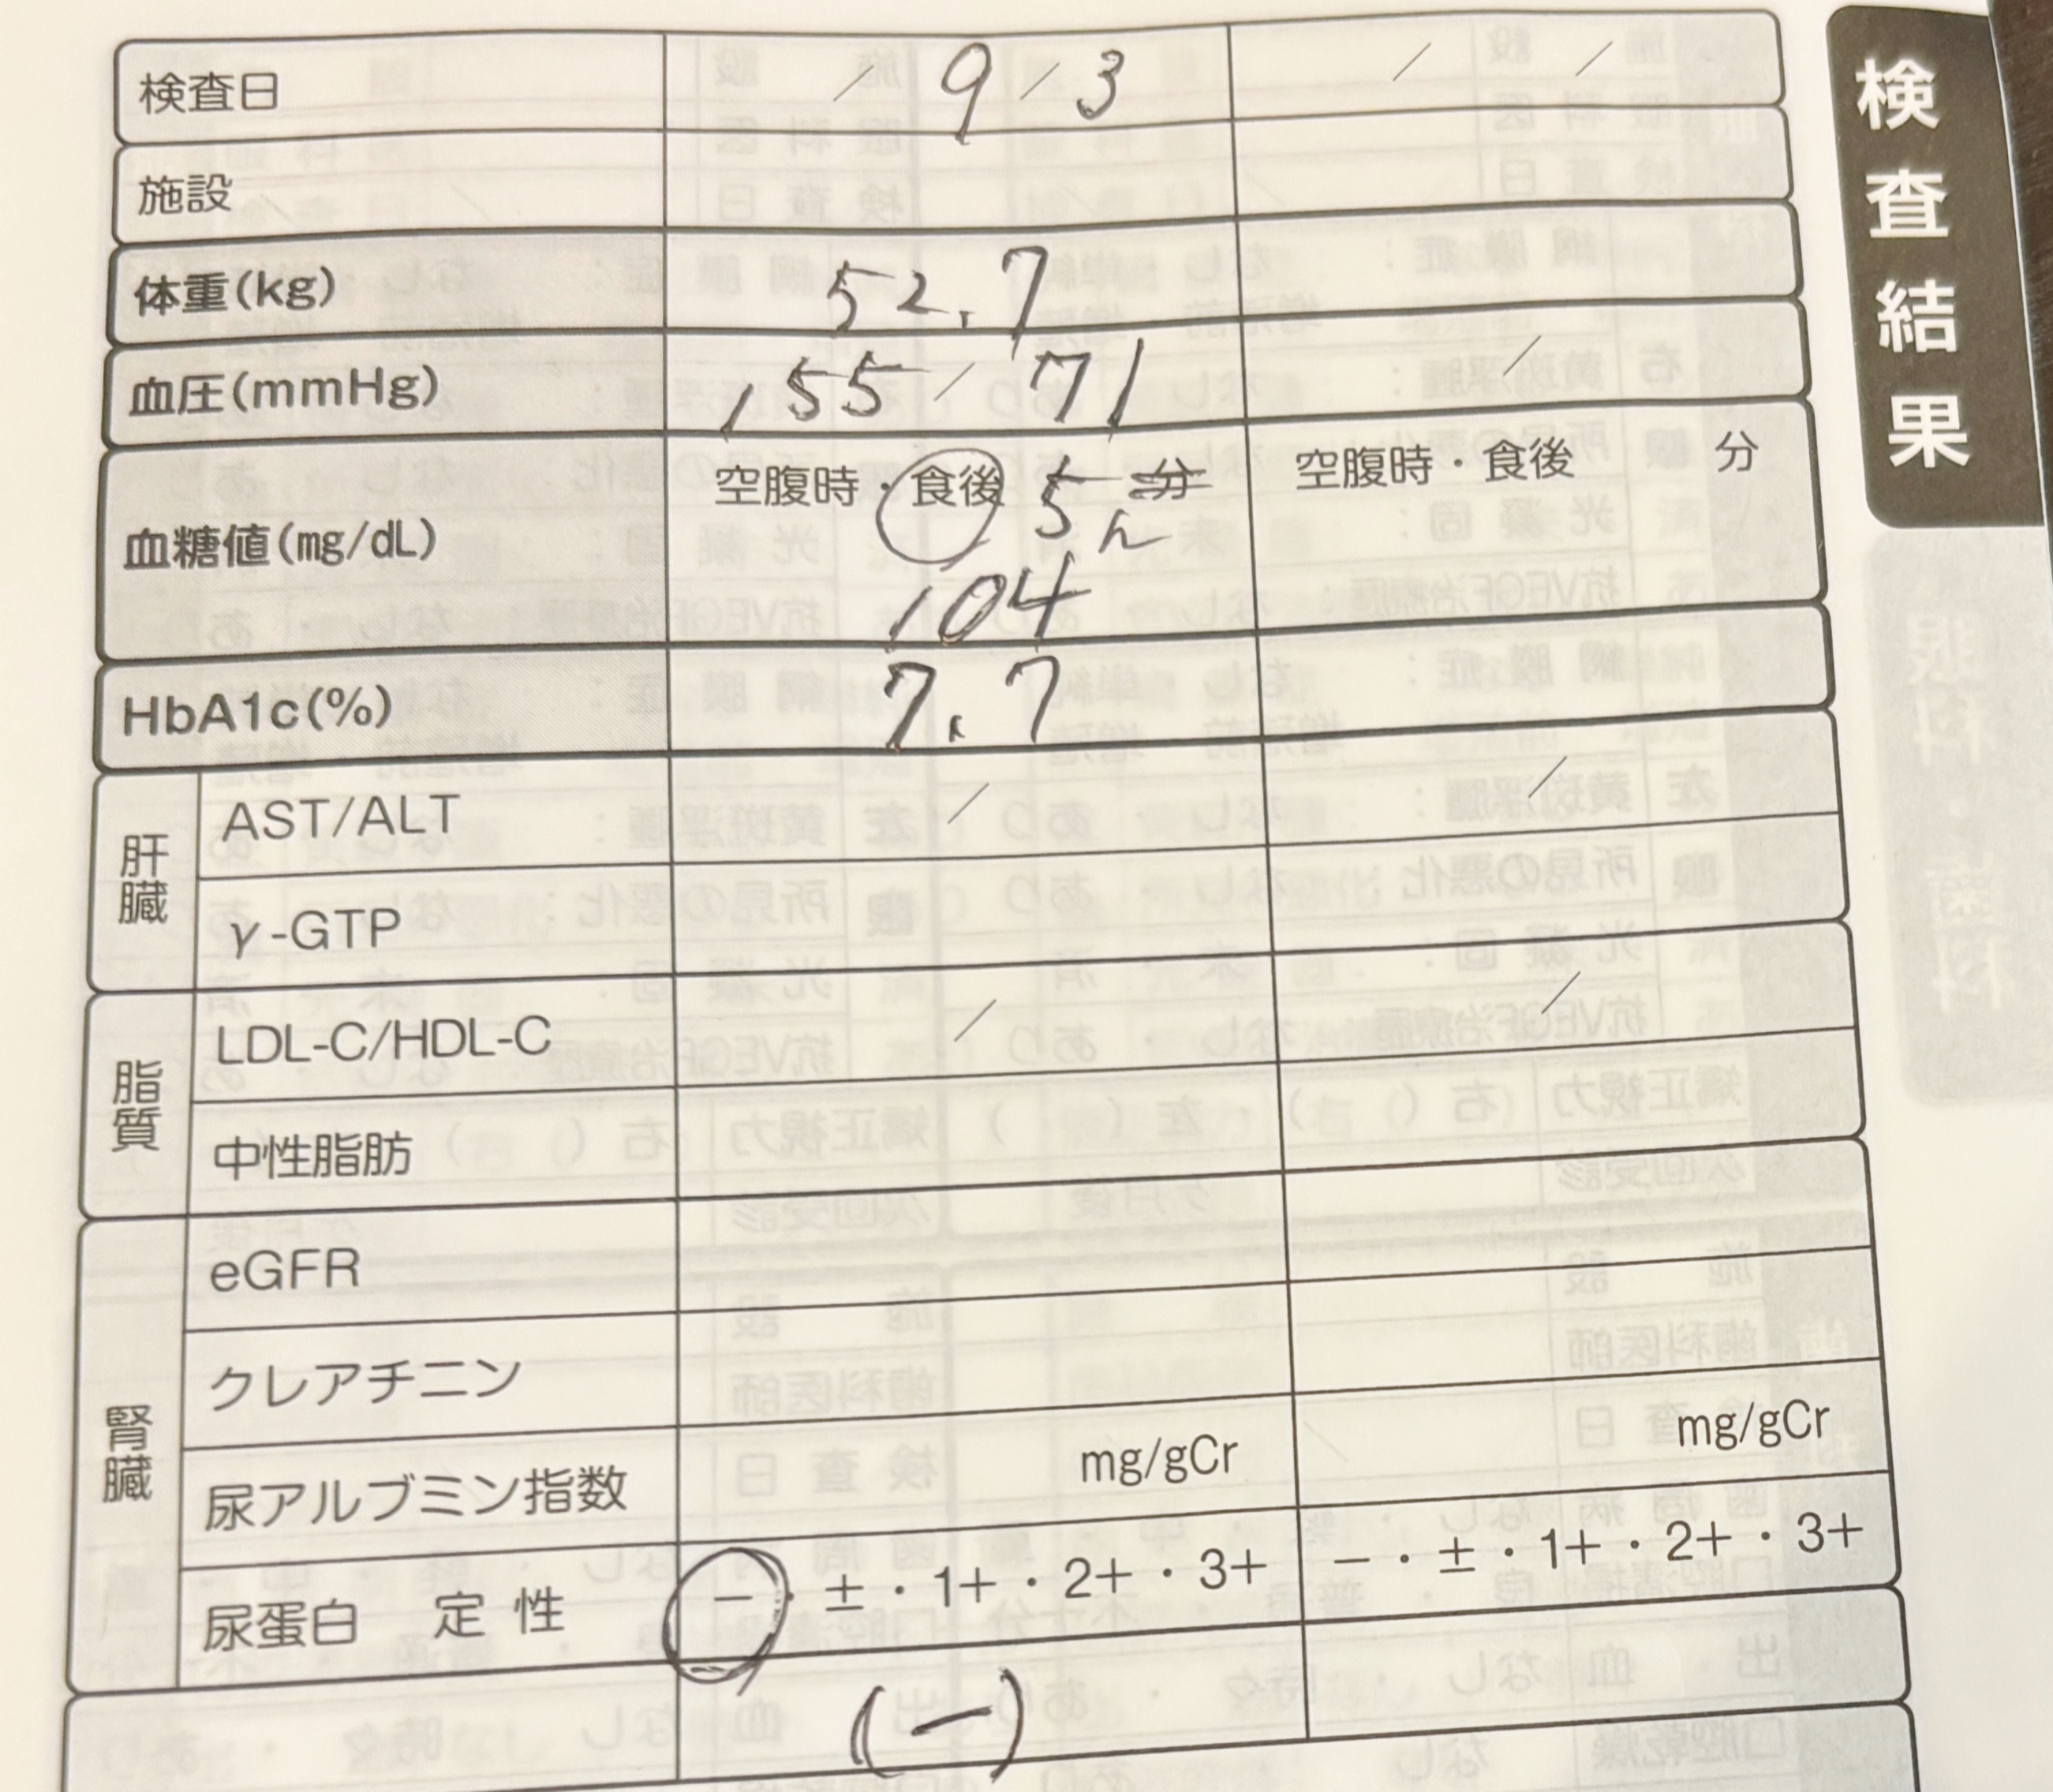 検査結果
検査日 / 9 / 3 / /
施設
体重(kg) 52.7
血圧(mmHg) 155 / 71 /
空腹時・食後 5 分 空腹時・食後 分
血糖値(mg/dL) h
104
HbA1c(%) 7.7
肝臓 AST/ALT / /
γ-GTP
脂質 LDL-C/HDL-C / /
中性脂肪
腎臓 eGFR
クレアチニン
尿アルブミン指数 mg/gCr mg/gCr
尿蛋白 定性 −・±・1+・2+・3+ −・±・1+・2+・3+
(−)